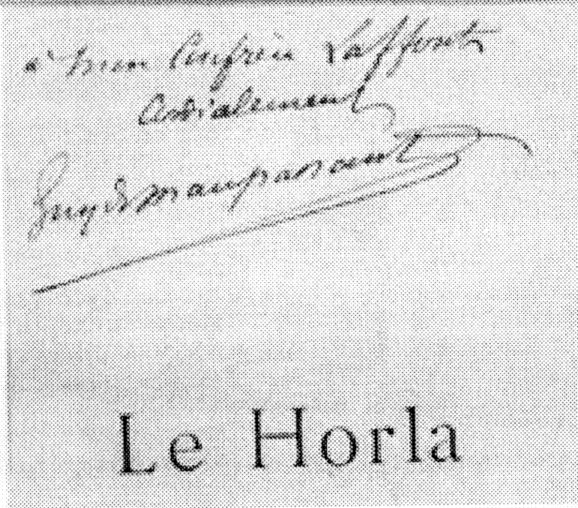 à mon confrère Laffont
Cordialement
Guy de Maupassant
Le Horla